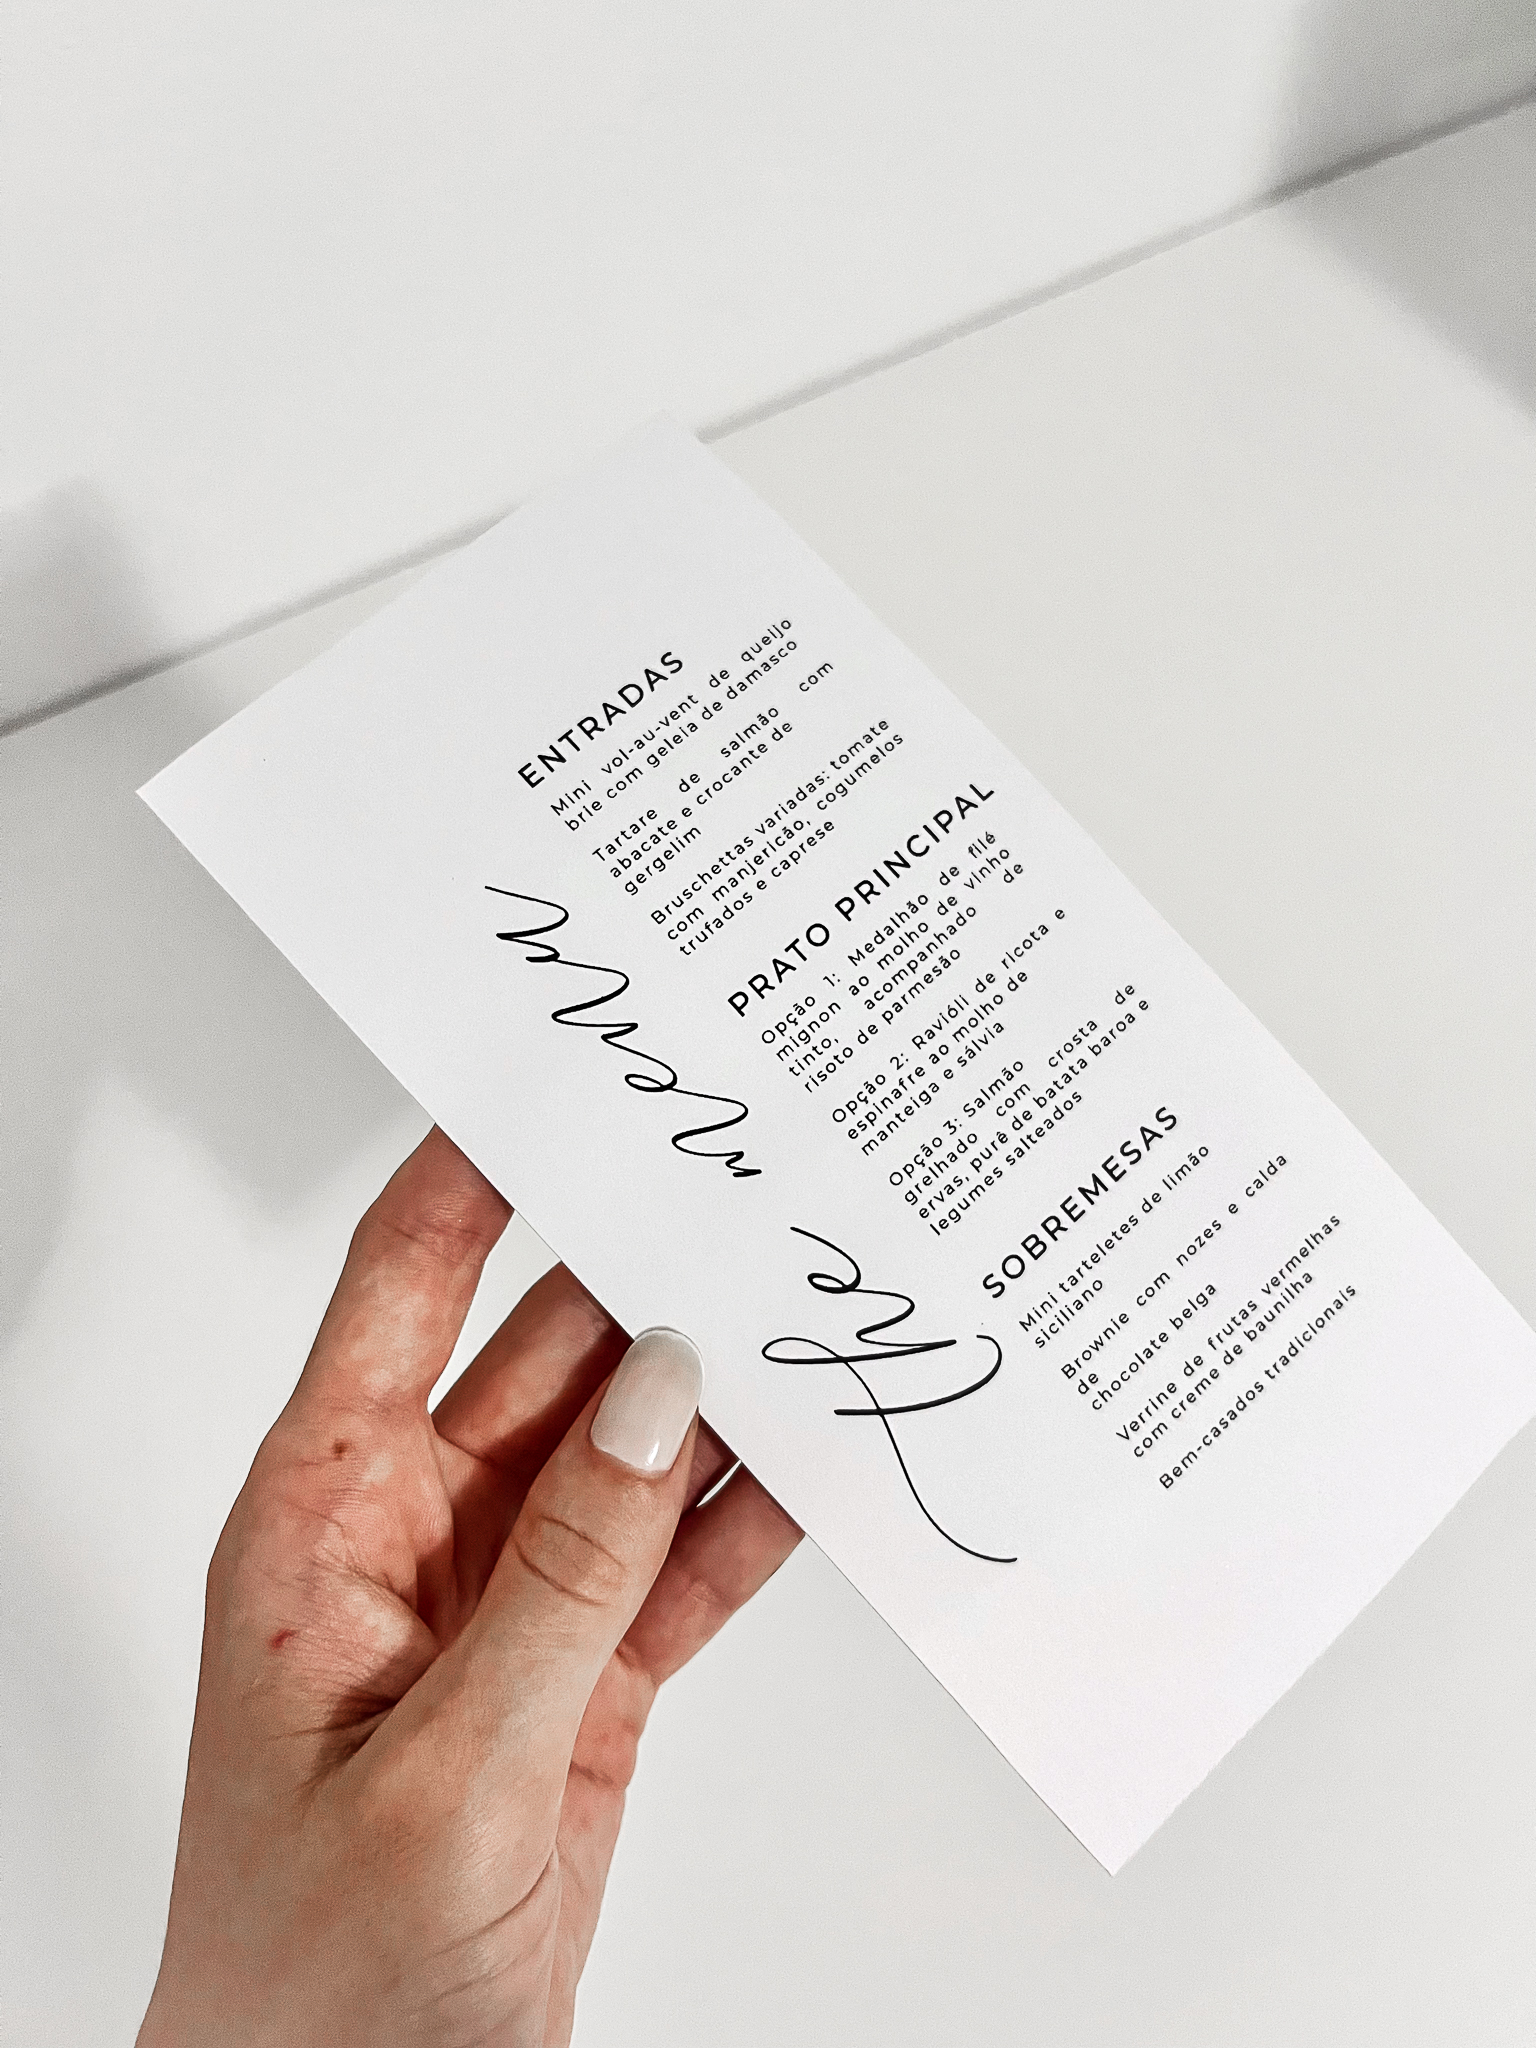 The menu
ENTRADAS
Mini vol-au-vent de queijo
brie com geleia de damasco
Tartare de salmão com
abacate e crocante de
gergelim
Bruschettas variadas: tomate
com manjericão, cogumelos
trufados e caprese
PRATO PRINCIPAL
Opção 1: Medalhão de filé
mignon ao molho de vinho
tinto, acompanhado de
risoto de parmesão
Opção 2: Ravióli de ricota e
espinafre ao molho de
manteiga e sálvia
Opção 3: Salmão
grelhado com crosta de
ervas, purê de batata baroa e
legumes salteados
SOBREMESAS
Mini tarteletes de limão
siciliano
Brownie com nozes e calda
de
chocolate belga
Verrine de frutas vermelhas
com creme de baunilha
Bem-casados tradicionais